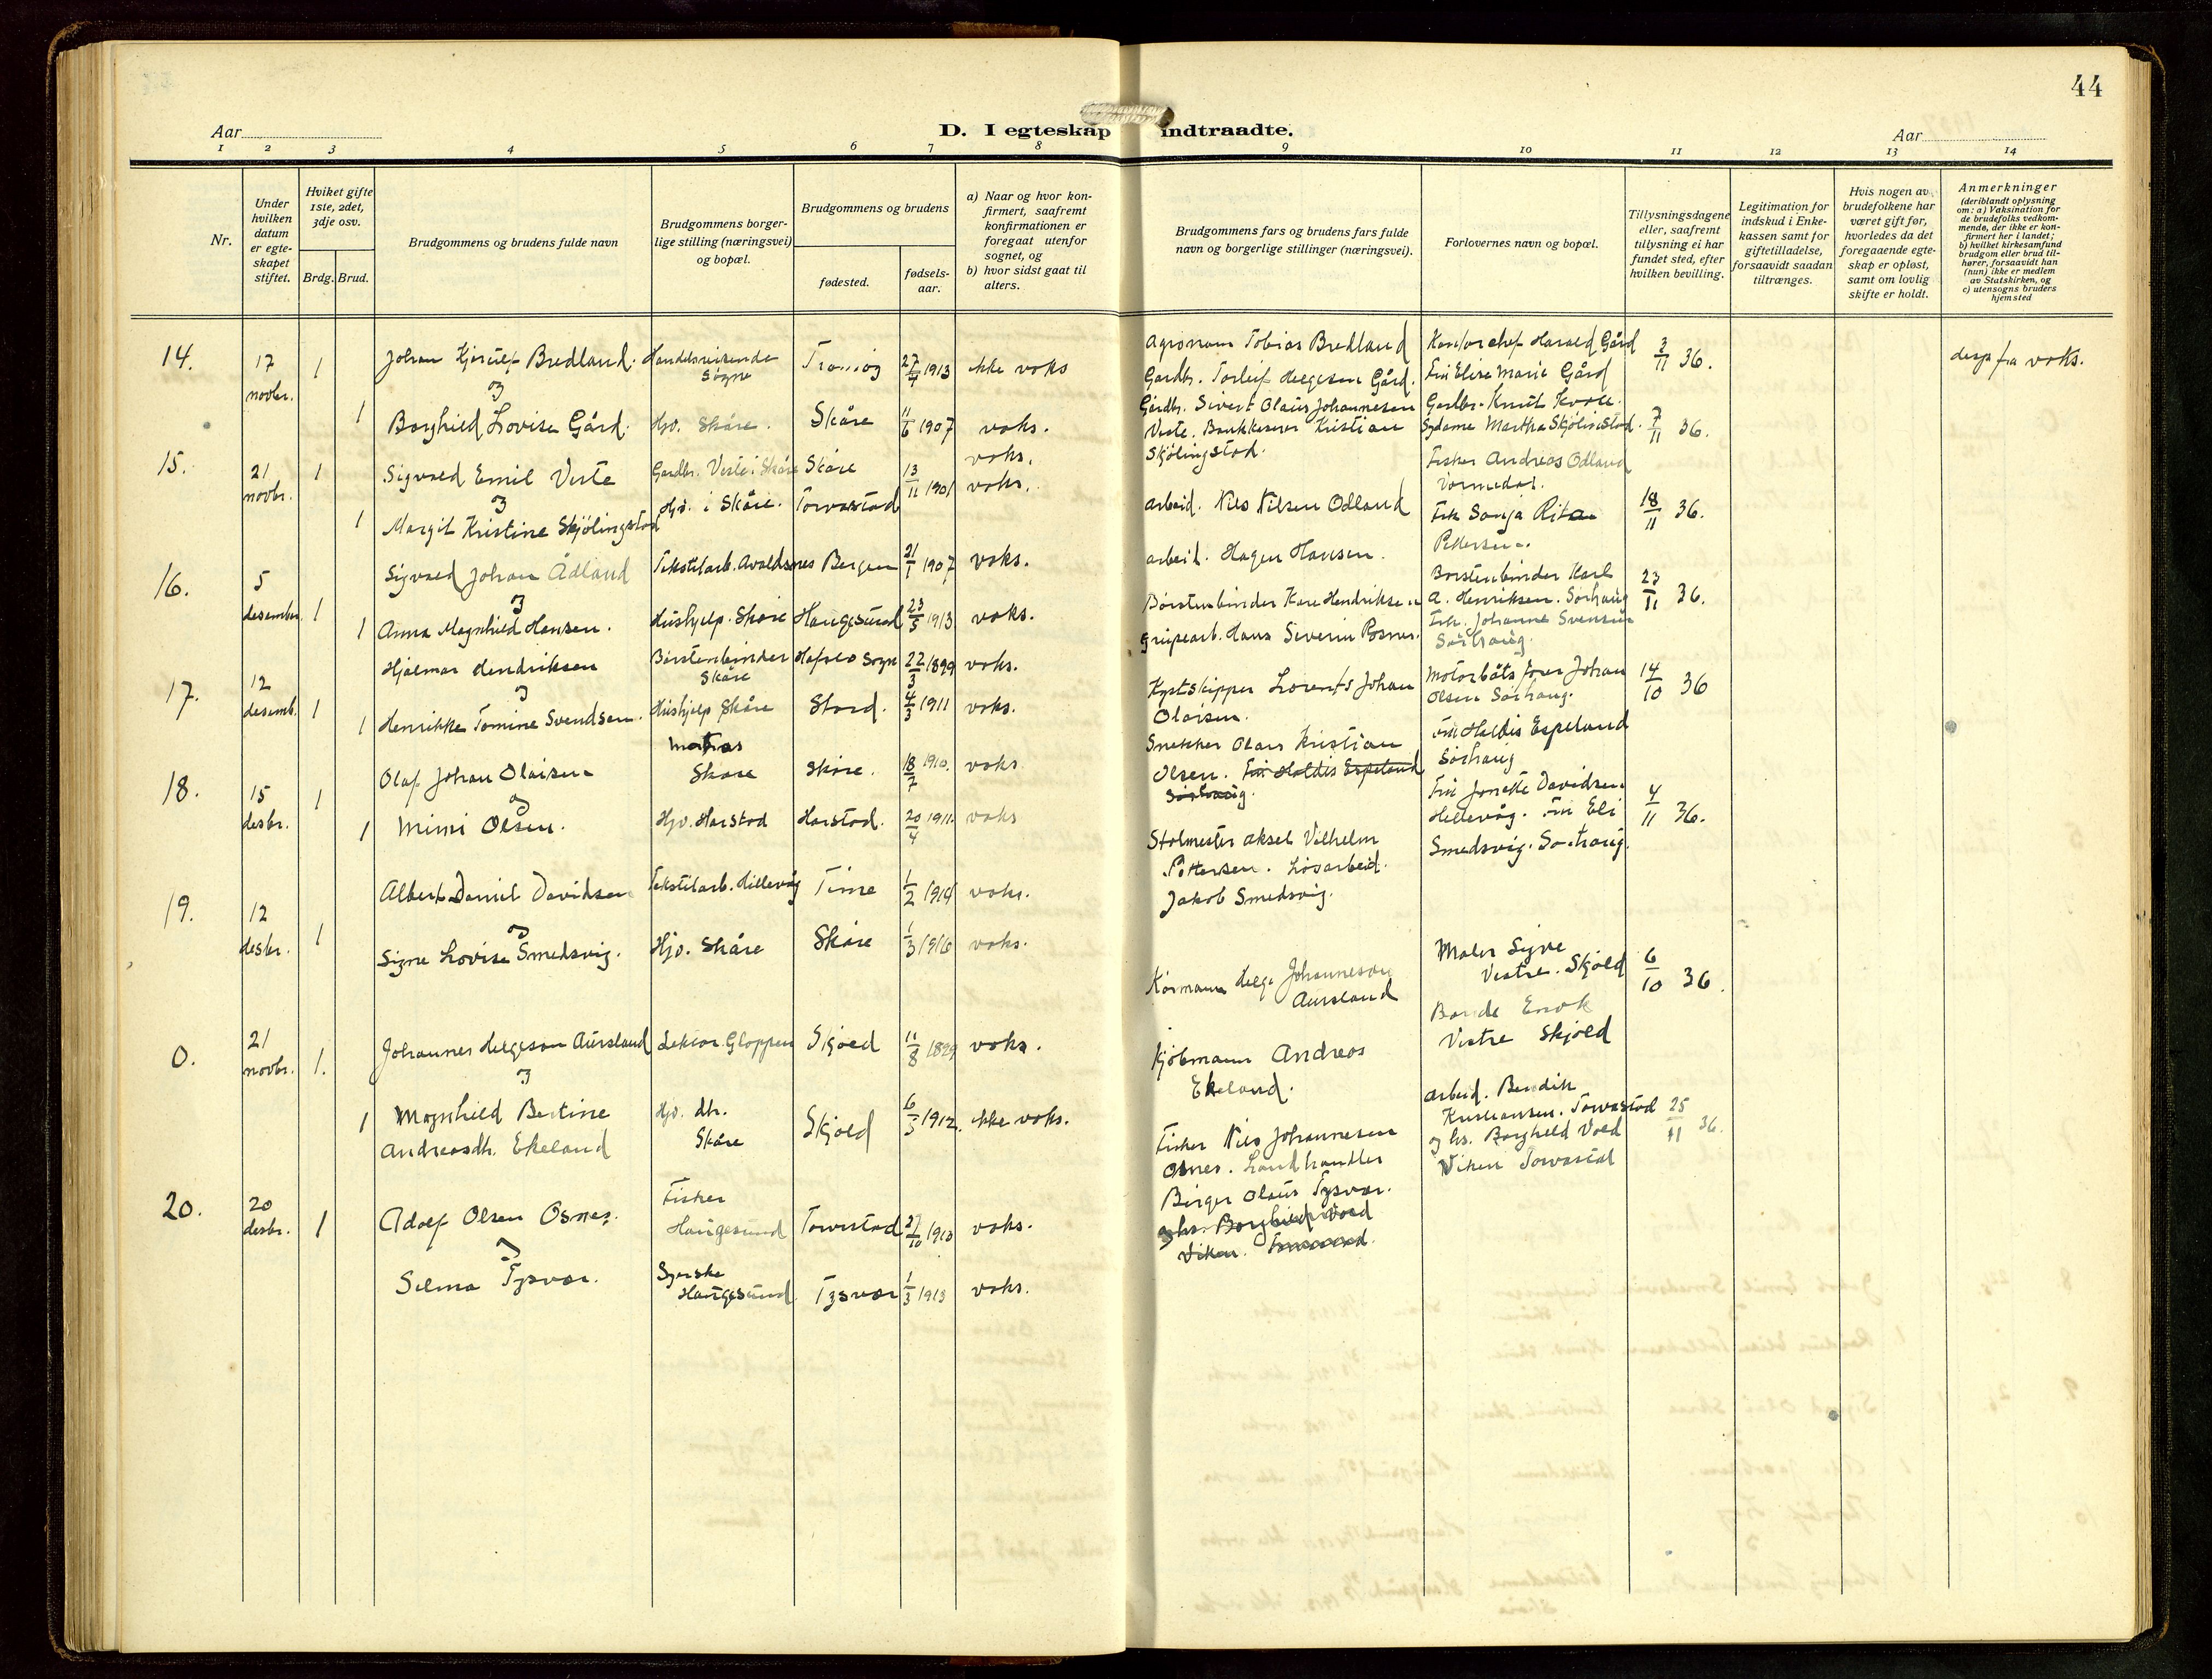 44
Aar
D. I egteskap indtraadte.
Aar
1 2 3 4 5 6 7 8 9 10 11 12 13 14
Nr.
Under hvilken datum er egte-skapet stiftet.
Hviket gifte 1ste, 2det, 3dje osv.
Brdg. Brud.
Brudgommens og brudens fulde navn
Brudgommens borger-
lige stilling (næringsvei)
og bopæl.
Brudgommens og brudens
fødested.
fødsels-
aar.
a) Naar og hvor kon-
firmert, saafremt
konfirmationen er
foregaat utenfor
sognet, og
b) hvor sidst gaat til
alters.
Brudgommens fars og brudens fars fulde
navn og borgerlige stillinger (næringsvei).
Forlovernes navn og bopæl.
Tillysningsdagene
eller, saafremt
tillysning ei har
fundet sted, efter
hvilken bevilling.
Legitimation for
indskud i Enke-
kassen samt for
giftetilladelse,
forsaavidt saadan
tiltrænges.
Hvis nogen av
brudefolkene har
været gift før,
hvorledes da det
foregaaende egte-
skap er opløst,
samt om lovlig
skifte er holdt.
Anmerkninger
(deriblandt oplysning
om: a) Vaksination for
de brudefolks vedkom-
mende, der ikke er kon-
firmert her i landet;
b) hvilket kirkesamfund
brudgom eller brud til-
hører, forsaavidt han
(hun) ikke er medlem
av Statskirken, og
c) utensogns bruders
hjemsted
14. 17 novbr. 1 Johan Bredland. Handelsreisende Søgne 27/4 1913 ikke voks
og
1 Borghild Lovise Gård. Hjv. Skåre. Skåre 11/6 1907 voks.
15. 21 novbr. 1 Sigvald Emil Veste Gardbr. Veste i Skåre Skåre voks.
og
1 Margit Kristine Skjölingstad Hjv. i Skåre. Torvastad 13/11 1901 voks.
16. 5 desember 1 Sigvald Johan Ådland Tekstilarb. Avaldsnes Bergen 21/1 1907 voks.
og
1 Anna Magnhild Hansen. Hushjelp. Skåre Haugesund 23/5 1913 voks.
17. 12 desemb. 1 Hjalmar Hendriksen Børstenbinder Skåre Hafslo Sogn 22/3 1899 voks.
og
1 Henrikke Tomine Svendsen. Hushjelp Skåre Stord. 4/3 1911 voks.
18. 15 desbr. 1 Olaf Johan Olaisen Matros Skåre Skåre. 18/7 1910. voks
og
1 Mimi Olsen. Hjv. Harstad Harstad. 20/4 1911. voks
19. 12 desbr. 1 Albert Daniel Davidsen Tekstilarb. Hillevåg Time 1/2 1914 voks.
og
Signe Lovise Smedsvig. Hjv. Skåre Skåre 1/3 1916 voks.
0. 21 novbr. 1. Johannes Helgeson Aursland Lektor. Gloppen Skjold 11/8 voks.
og
1 Magnhild Bertine Andreasdtr. Ekeland Hjv. dtr. Skåre Skjold 1912. ikke voks.
20. 20 desbr. 1 Adolf Olsen Osnes. Fisker Haugesund Torvestad 27/10 1910 voks.
og
Selma Tysvær. Syerske Haugesund Tysvær 1/3 1913 voks.
Agronom Tobias Bredland
Gardbr. Torleif Helgesen Gård.
Gårdbr. Sivert Olaus Johannesen
Veste. Bankkasserer Kristian
Skjölingstad.
arbeid. Nils Nilsen Odland
arbeid. Hagen Hansen.
Børstenbinder Kare Hendriksen
Grupearb. Hans Severin Posnes.
Kystskipper Lorents Johan
Olaisen.
Snekker Olaus Kristian
Olsen. Fru Haldis Espeland
Sørhaug.
Stolmester Aksel Vilhelm
Pettersen. Løsarbeid.
Jakob Smedsvig.
Kørmann Helge Johanneson
Aursland
Kjøbmann Andreas
Ekeland.
Fisker Nils Johannesen
Osnes. Landhandler
Birger Olaus Tysvær.
og hs. Borghild Vold
Viken.
Kontorchef Harald Gård
Fru Elise Marie Gård
Gardbr. Knut Kvale.
Sydame Martha Skjölingstad.
Fisker Andreas Odland
Vormedal.
Frk Sonja Rita
Pettersen.
Børstenbinder Karl
A. Henriksen. Sørhaug
Frk. Johanne Svensen
Sørhaug.
Motorbåts fører Johan
Olsen Sørhaug.
Fru Haldis Espeland
Sørhaug
Fru Jonette Davidsen
Hillevåg. Fru Eli
Smedsvig. Sørhaug.
Maler Signe
Vestre. Skjold
Bonde Enok
Vestre Skjold
arbeid. Bendik
Kristiansen. Torvastad
og hs. Borghild Vold
Viken Torvastad
3/11 36.
7/11 36.
18/11 36.
23/11 36.
14/10 36
4/11 36.
6/10 36.
25/11 36.
desp fra voks.